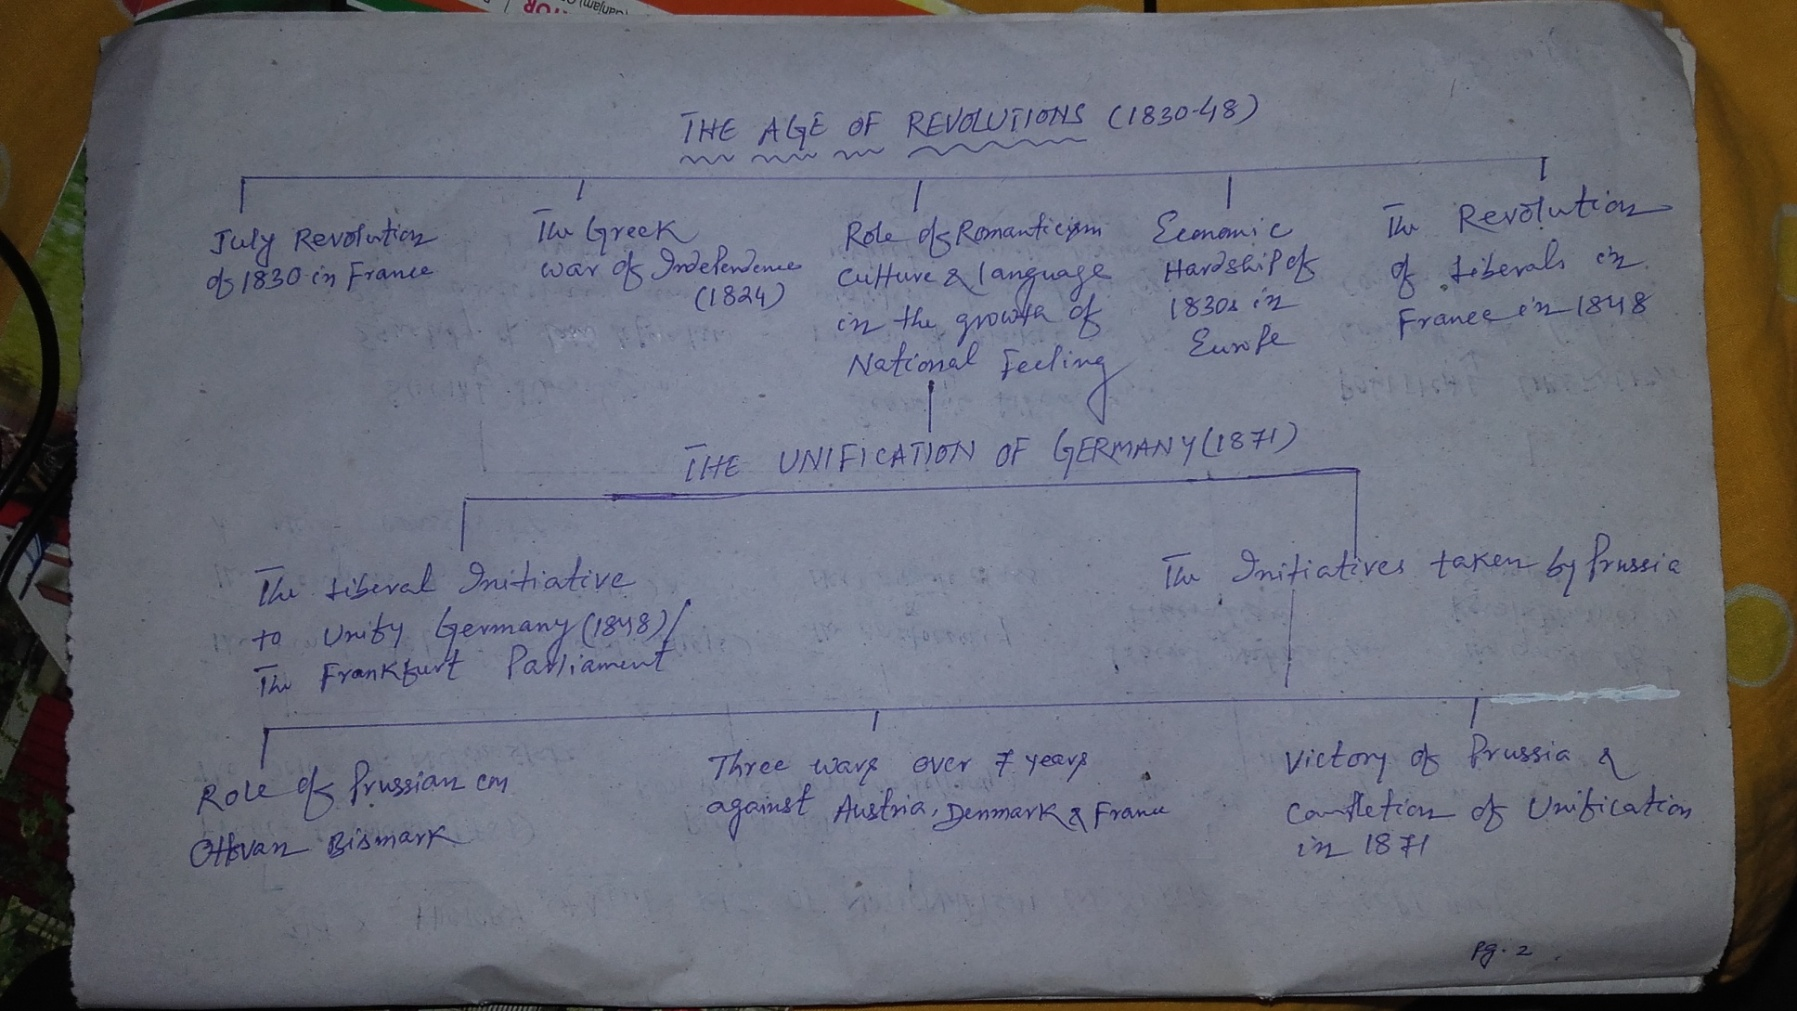 THE AGE OF REVOLUTIONS (1830-48)
July Revolution
of 1830 in France
The Greek
war of Independence
(1824)
Role of Romanticism
culture & language
in the growth of
National Feeling
Economic
Hardship of
1830s in
Europe
The Revolution
of Liberals in
France in 1848
THE UNIFICATION OF GERMANY (1871)
The Liberal Initiative
to Unify Germany (1848)/
The Frankfurt Parliament
The Initiatives taken by Prussia
Role of Prussian CM
Ottovan Bismark
Three wars over 7 years
against Austria, Denmark & France
Victory of Prussia &
Completion of Unification
in 1871
Pg. 2